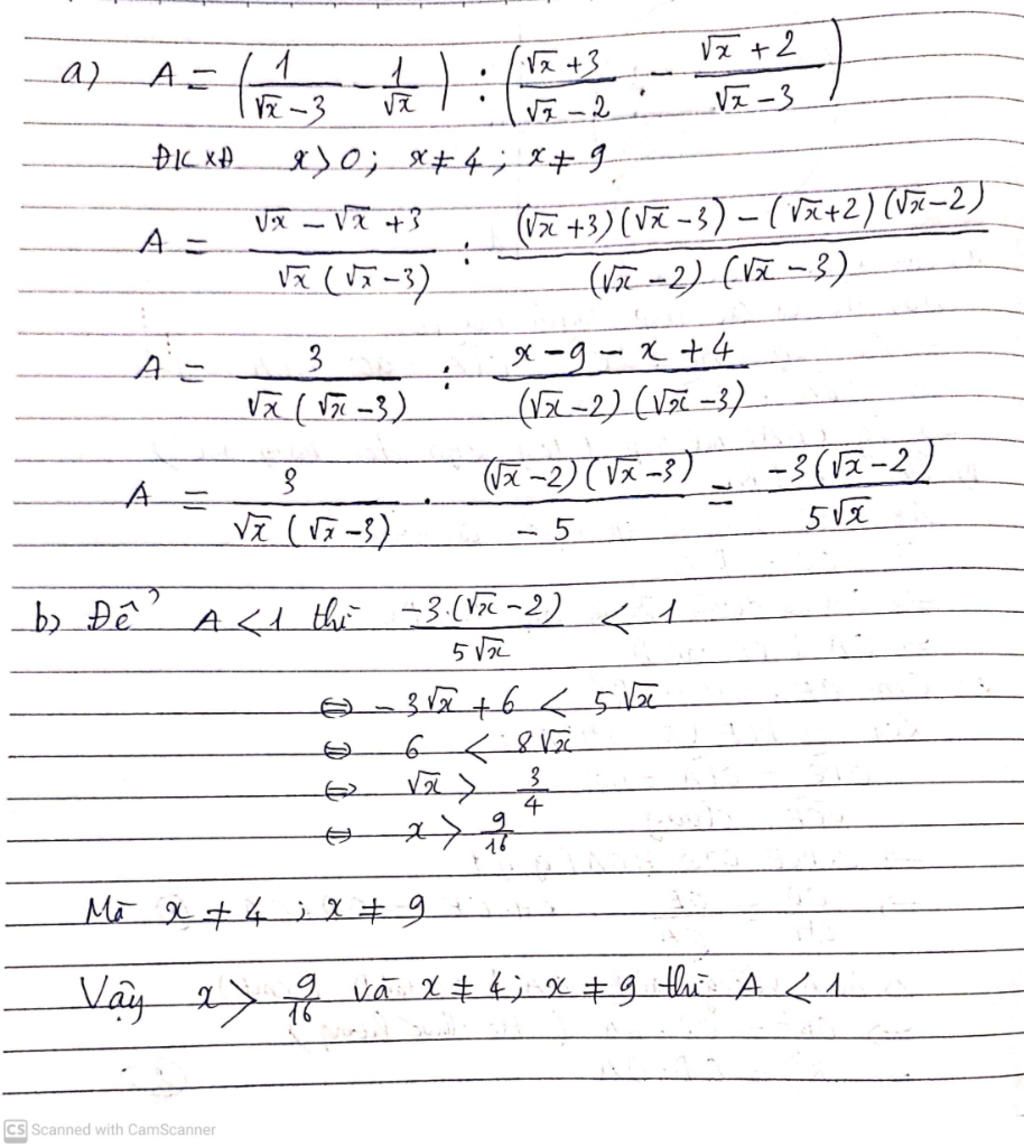 a) A = (1/(√x - 3) - 1/√x) : ((√x + 3)/(√x - 2) - (√x + 2)/(√x - 3))
ĐKXĐ x > 0; x ≠ 4; x ≠ 9
A = (√x - √x + 3)/(√x (√x - 3)) : ((√x + 3)(√x - 3) - (√x + 2)(√x - 2))/((√x - 2)(√x - 3))
A = 3/(√x (√x - 3)) : (x - 9 - x + 4)/((√x - 2)(√x - 3))
A = 3/(√x (√x - 3)) . ((√x - 2)(√x - 3))/(-5) = (-3(√x - 2))/(5√x)
b) Để A < 1 thì (-3.(√x - 2))/(5√x) < 1
⇔ - 3√x + 6 < 5√x
⇔ 6 < 8√x
⇔ √x > 3/4
⇔ x > 9/16
Mà x ≠ 4; x ≠ 9
Vậy x > 9/16 và x ≠ 4; x ≠ 9 thì A < 1
CS Scanned with CamScanner